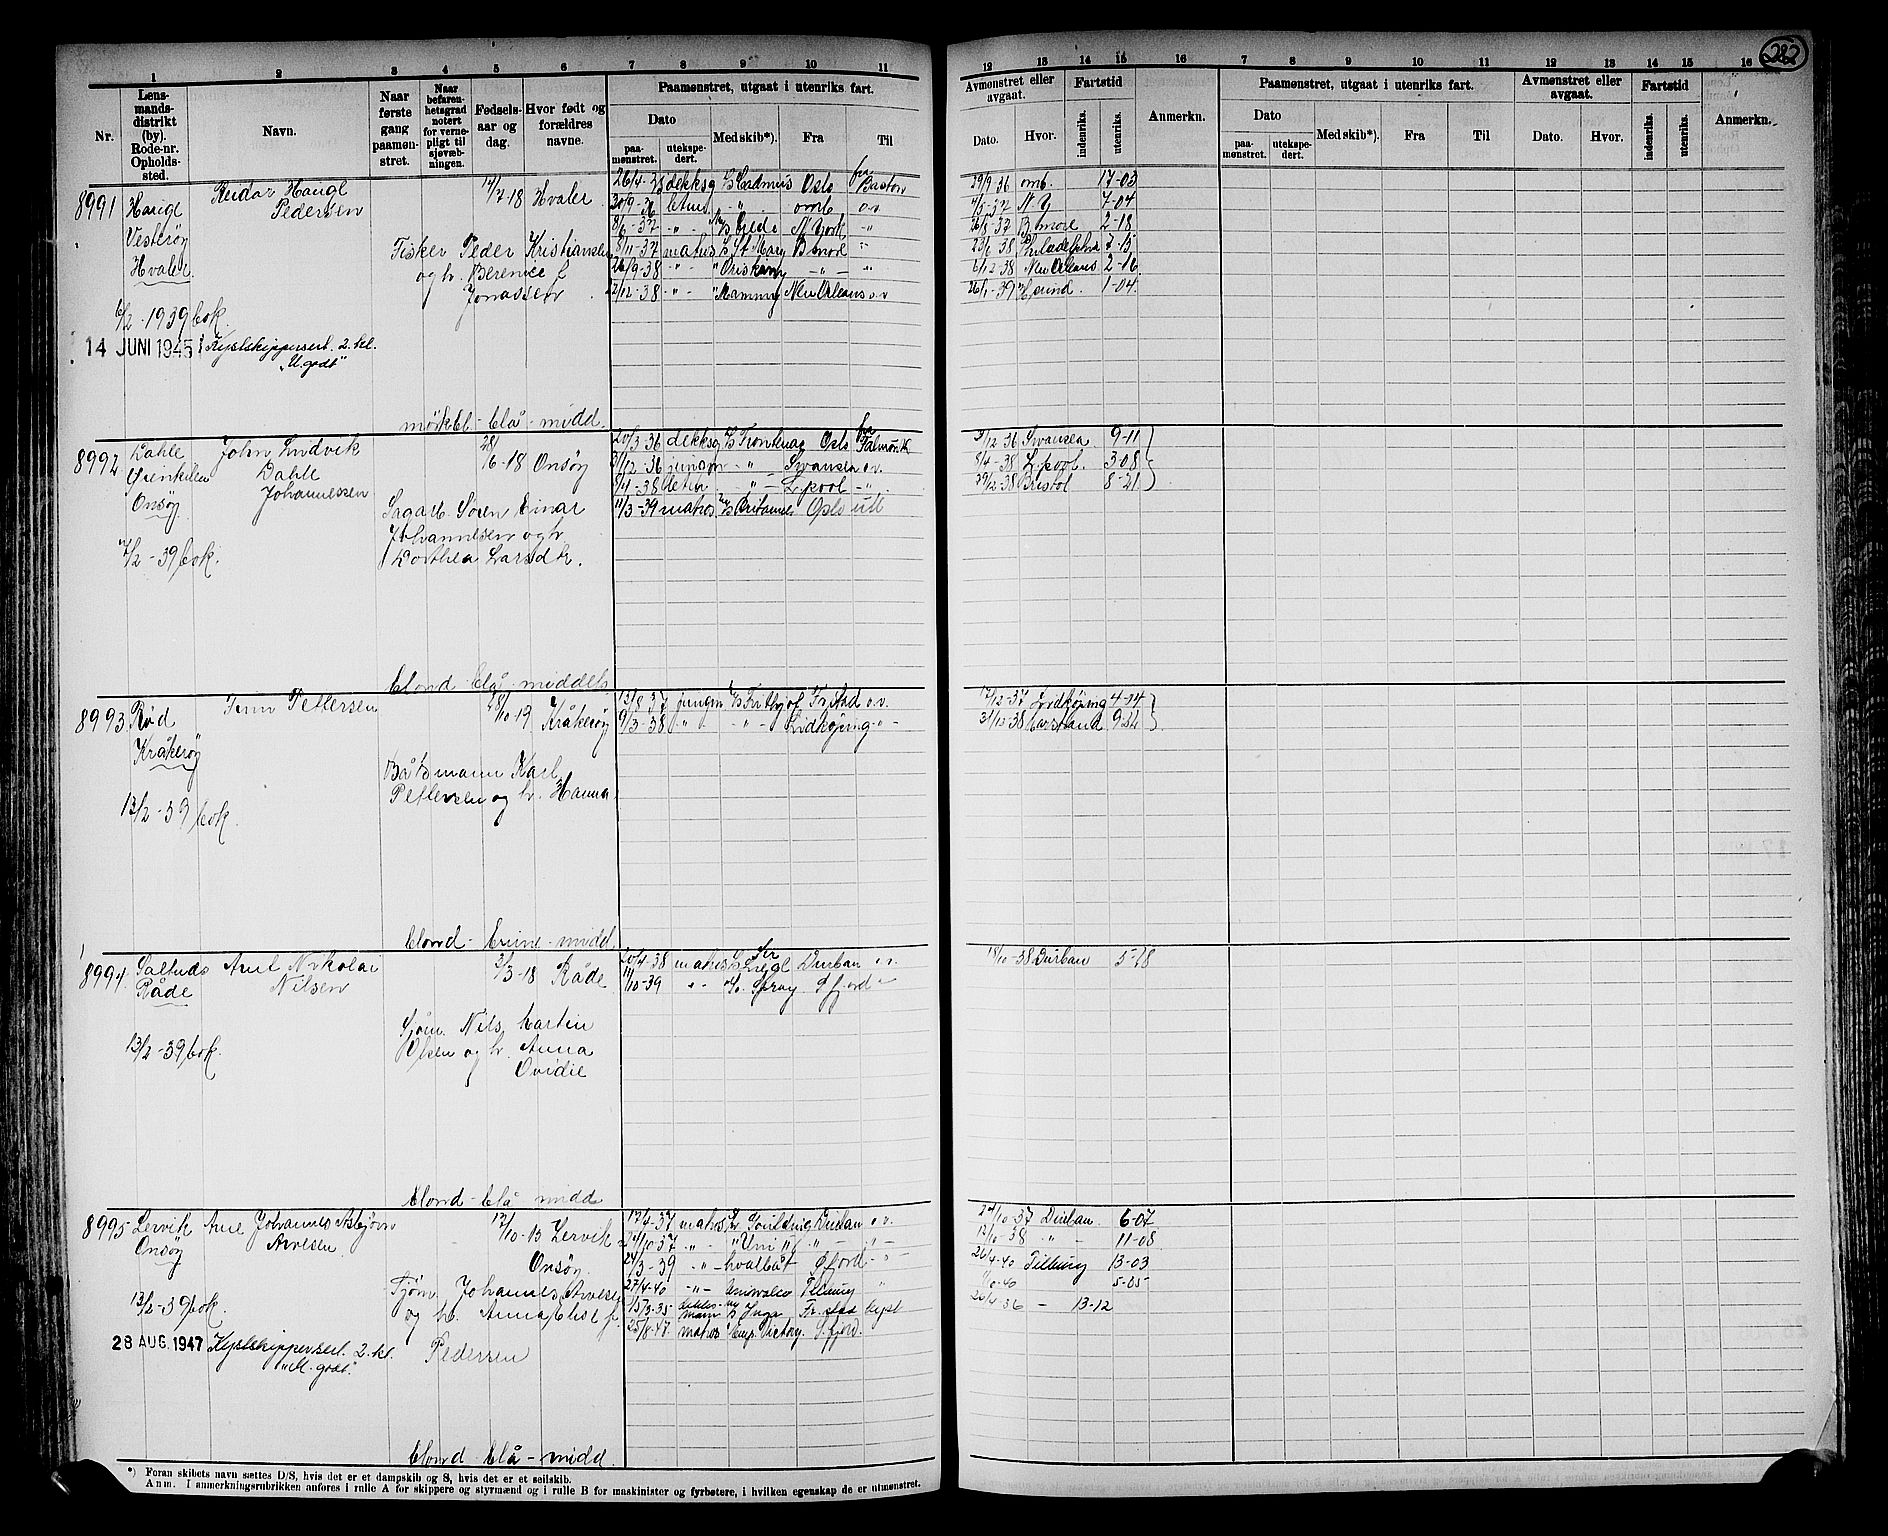 282
1 2 3 4 5 6 7 8 9 10 11
12 13 14 15 16 7 8 9 10 11 12 13 14 15 16
Nr.
Lensmandsdistrikt (by). Rode-nr. Opholdssted.
Navn.
Naar første gang paamønstret.
Naar befarenhetsgrad notert for vernepligt til sjøvæbningen.
Fødselsaar og dag.
Hvor født og forældres navne.
Paamønstret, utgaat i utenriks fart.
Dato
paamønstret. utekspedert.
Med skib*). Fra Til
Avmønstret eller avgaat.
Dato. Hvor.
Fartstid
indenriks. utenriks.
Anmerkn.
Paamønstret, utgaat i utenriks fart.
Dato
paamønstret. utekspedert.
Med skib*). Fra Til
Avmønstret eller avgaat.
Dato. Hvor.
Fartstid
indenriks. utenriks.
Anmerkn.
8991 Haugl Reidar Haugl 17/7-18 Hvaler
Pedersen
Vesterøy
Hvaler
Fisker Peder Kristiansen
og h. Berenice f
Jonassen
6/2-1939 bok.
14 JUNI 1945 Kystskippersert. 2. kl.
"M. godt"
mørkbl - blå - midd.
26/4-36 dekksg Cadmus Oslo fra Baston 29/9 36 omb. 17-03
30/9-36 letm. - " - omb o.v. 4/5-37 N.Y. 7-04
8/6-37 - " - Gjede N. York - " 26/8 37 B.more 2-18
8/11-37 matros St Mary B.more - " 23/6 38 Philadelphia 7-15
20/9-38 - " - Oriskany - " - - " 6/12 38 New Orleans 2-16
22/12-38 - " - Mammy New Orleans o.v 26/1-39 H.sund. 1-04.
8992 Dahle John Ludvik 28/6-18 Onsøy
Dahle
Johannessen
Onsøy
Sagarb. Søren Einar
Johannessen og h
Dorthea Larsd tr.
17/2-39 bok.
blond - blå - middels
20/3-36 dekksg Frontenac Oslo fra Falmouth 31/12 36 Swansea 9-11
31/12-36 jungm - " - Swansea o.v. 8/4-38 L.pool. 3-08
8/4-38 letm. - " - L.pool - " - 29/12-38 Bristol 8-21
11/3-39 matros Britamsea Oslo utl
8993 Rød Finn Pettersen 18/10-19 Kråkerøy
Kråkerøy
Båtsmann Karl
Pettersen og h. Hanna
13/2-39 bok.
blond - brune - midd.
13/8 37 jungm Frithjof Fr.stad o.v. 17/12-37 Lidkøping 4-04
9/3-38 " - " - Lidkøping - " - 31/12-38 Carstand 9-22
8994 Saltnds Arnt Nikolai 3/3-18 Råde
Råde Nilsen
Sjøm. Nils Martin
Olsen og h. Anna
Ovidie
13/2-39 bok.
blond - blå midd
20/4-38 matros Sir Durban o.v. 18/10-38 Durban 5-28
11/10-39 " - Spray S.fjord - "
8995 Lervik Arne Johannes Asbjørn 12/10-13 Lervik
Onsøy Arvesen Onsøy
Tjøm. Johannes Arvesen
og h. Anna Elise f.
Pedersen
13/2-39 bok.
28 AUG. 1947 Kystskippersert. 2. kl.
"M. godt".
blond - blå - midd.
17/4-37 matros Goulding Durban o.v. 24/10-37 Durban 6-07
24/10-37 " - Uni " - 12/10 38 - " - 11-08
24/3-39 - " - hvalbåt S.fjord - " - 26/4-40 Tilbury 13-03
27/4-40 - " - Uniwaleco Tilbury " 10-40 5-25
15/3-35 dekksmann Inga Fr.stad kyst 26/4 36 - 13-12
25/8-47 matros Emp. Victory. S.fjord.
*) Foran skibets navn sættes D/S, hvis det er et dampskib og S, hvis det er et seilskib.
Anm. I anmerkningsrubrikken anføres i rulle A for skippere og styrmænd og i rulle B for maskinister og fyrbøtere, i hvilken egenskap de er utmønstret.